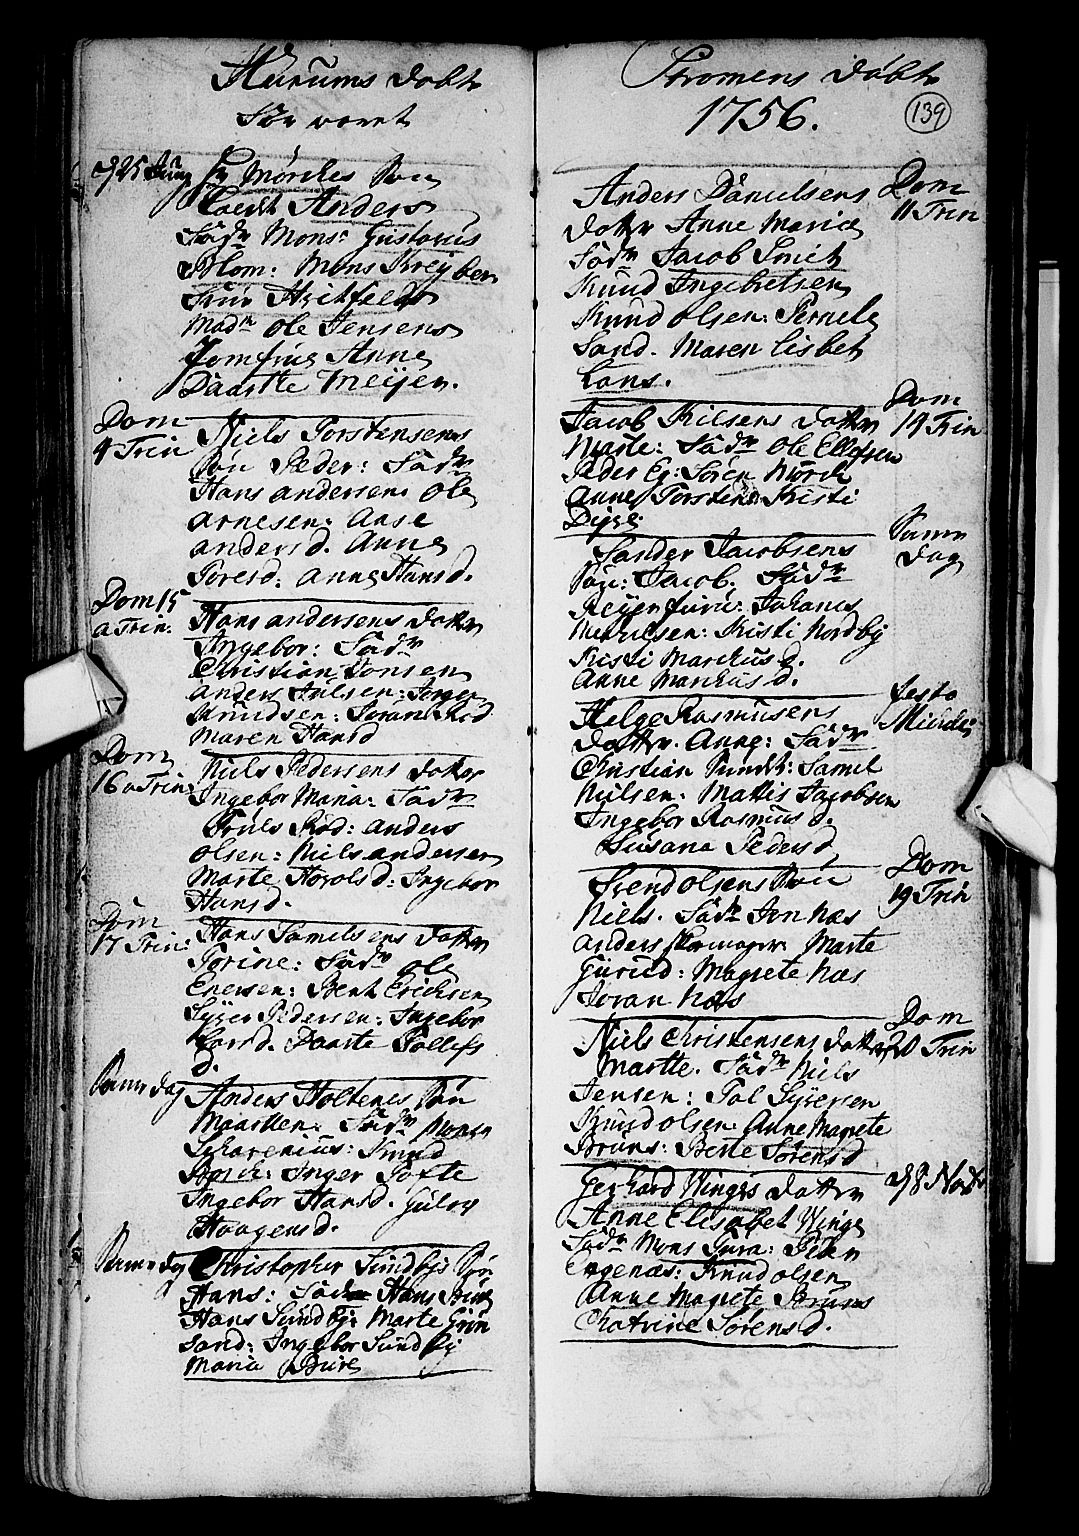 Hurums Døbt
for woret
d 25 Jun Hr Mørches Søn
kaldt Anders
Fadr Mons: Gustavus
Blom: Mons Kreyber
Fru Hvitfeldt
Madm Ole Jensens
Jomfrue Anne
Daarthe Meijer.
Dom
4 Trin
Niels Torstensens
søn Peder: Fadr
Hans andersen: Ole
Arnesen: Anse
anders d. Anne
Tores d: Anne Hans d.
Dom 15
a Trin:
Hans andersens Dotter
Ingebor: Fadr
Christian Jonsen
anders Julsen: Jørgen
Knudsen: Joran Rød
Maren Hans d
Dom
16 a Trin:
Niels Pedersens Dotter
Ingebor Maria: Fadr
Truls Rød: anders
Olsen: Niels andersen
Marte Horols d: Ingebor
Hans d.
Dom
17 Trin:
Hans Samels ens Dotter
Torine: Fadr Ole
Enersen: Bent Erichsen
Syver Pedersen: Ingebor
Lars d. Daarte Tollefs
d.
Samme dag
Anders Holtenes Søn
Maarten: Fadr Mons
Scharenius: Knud
Borch: Inger Tofte
Ingebor Hans d. Gulov
Haagens d.
Samme dag
Christopher Sundbys Søn
Hans: Fadr Hans Brun
Hans Sundby: Marte Grim
sand: Ingebor Sundby
Maria Bure
Strømens Døbt
1756.
139
Anders Danielsens
Dotter Anne Maria
Fadr Jacob Smit
Knud Ingebretsen
Knud Olsen: Pernele
Sand. Maren Lisbet
Lans.
Dom
11 Trin
Jacob Nilsens Dotter
Marte: Fadr Ole Ellefsen
Peder Eg: Søren Mørch
Anne Torsten Kristi
Dyre
Dom
14 Trin
Sander Jacobsens
Søn: Jacob. Fadr
Reijer furu: Johanes
Michelsen: Kristi Nordby
Kristi Marckus d.
Anne Markus d.
Samme
dag
Helge Rasmusens
Dotter. Anne: Fadr
Christian Sundt: Samel
Nielsen: Mattis Jacobsen
Ingebor Rasmus d.
Susana Peders d
festo
Michalis
Svend Olsens Søn
Niels. Fadr Jon Næs
anders skomager Marte
Gurud: Magrete Næs
Joran Næs
Dom
19 Trin
Niels Christensens Dotter
Marthe. Fadr Niels
Jensen: Tol Syversen
Knud Olsen: Anne Magrete
Bruns: Berte Sørens d
Dom
20 Trin
Gerhard Winges Dotter
Anne Elisabet Winge
Fadr Mons Tura: Peder
Engenæs: Knud Olsen
Anne Magrete Bruns
Chatrine Sørens d.
d 8 Novbr